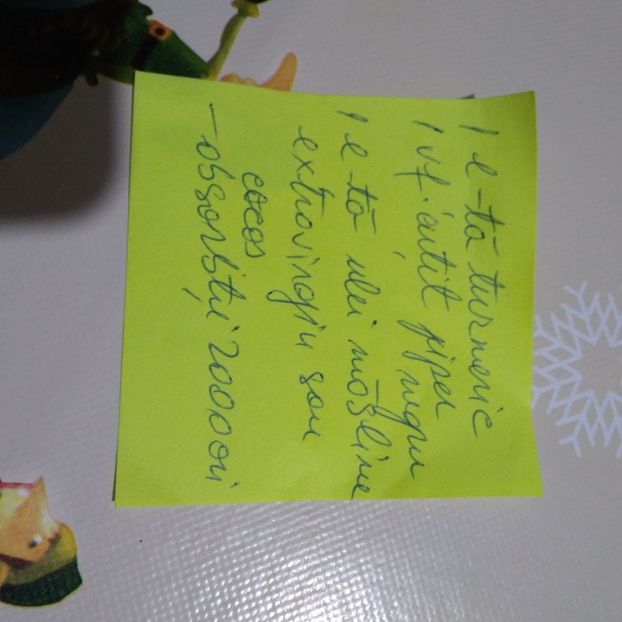 1 e-tă turmeric
1 vf. cuțit piper
negru
1 e-tă ulei măsline
extravirgin sau
cocos
-absorbții 2000 ori